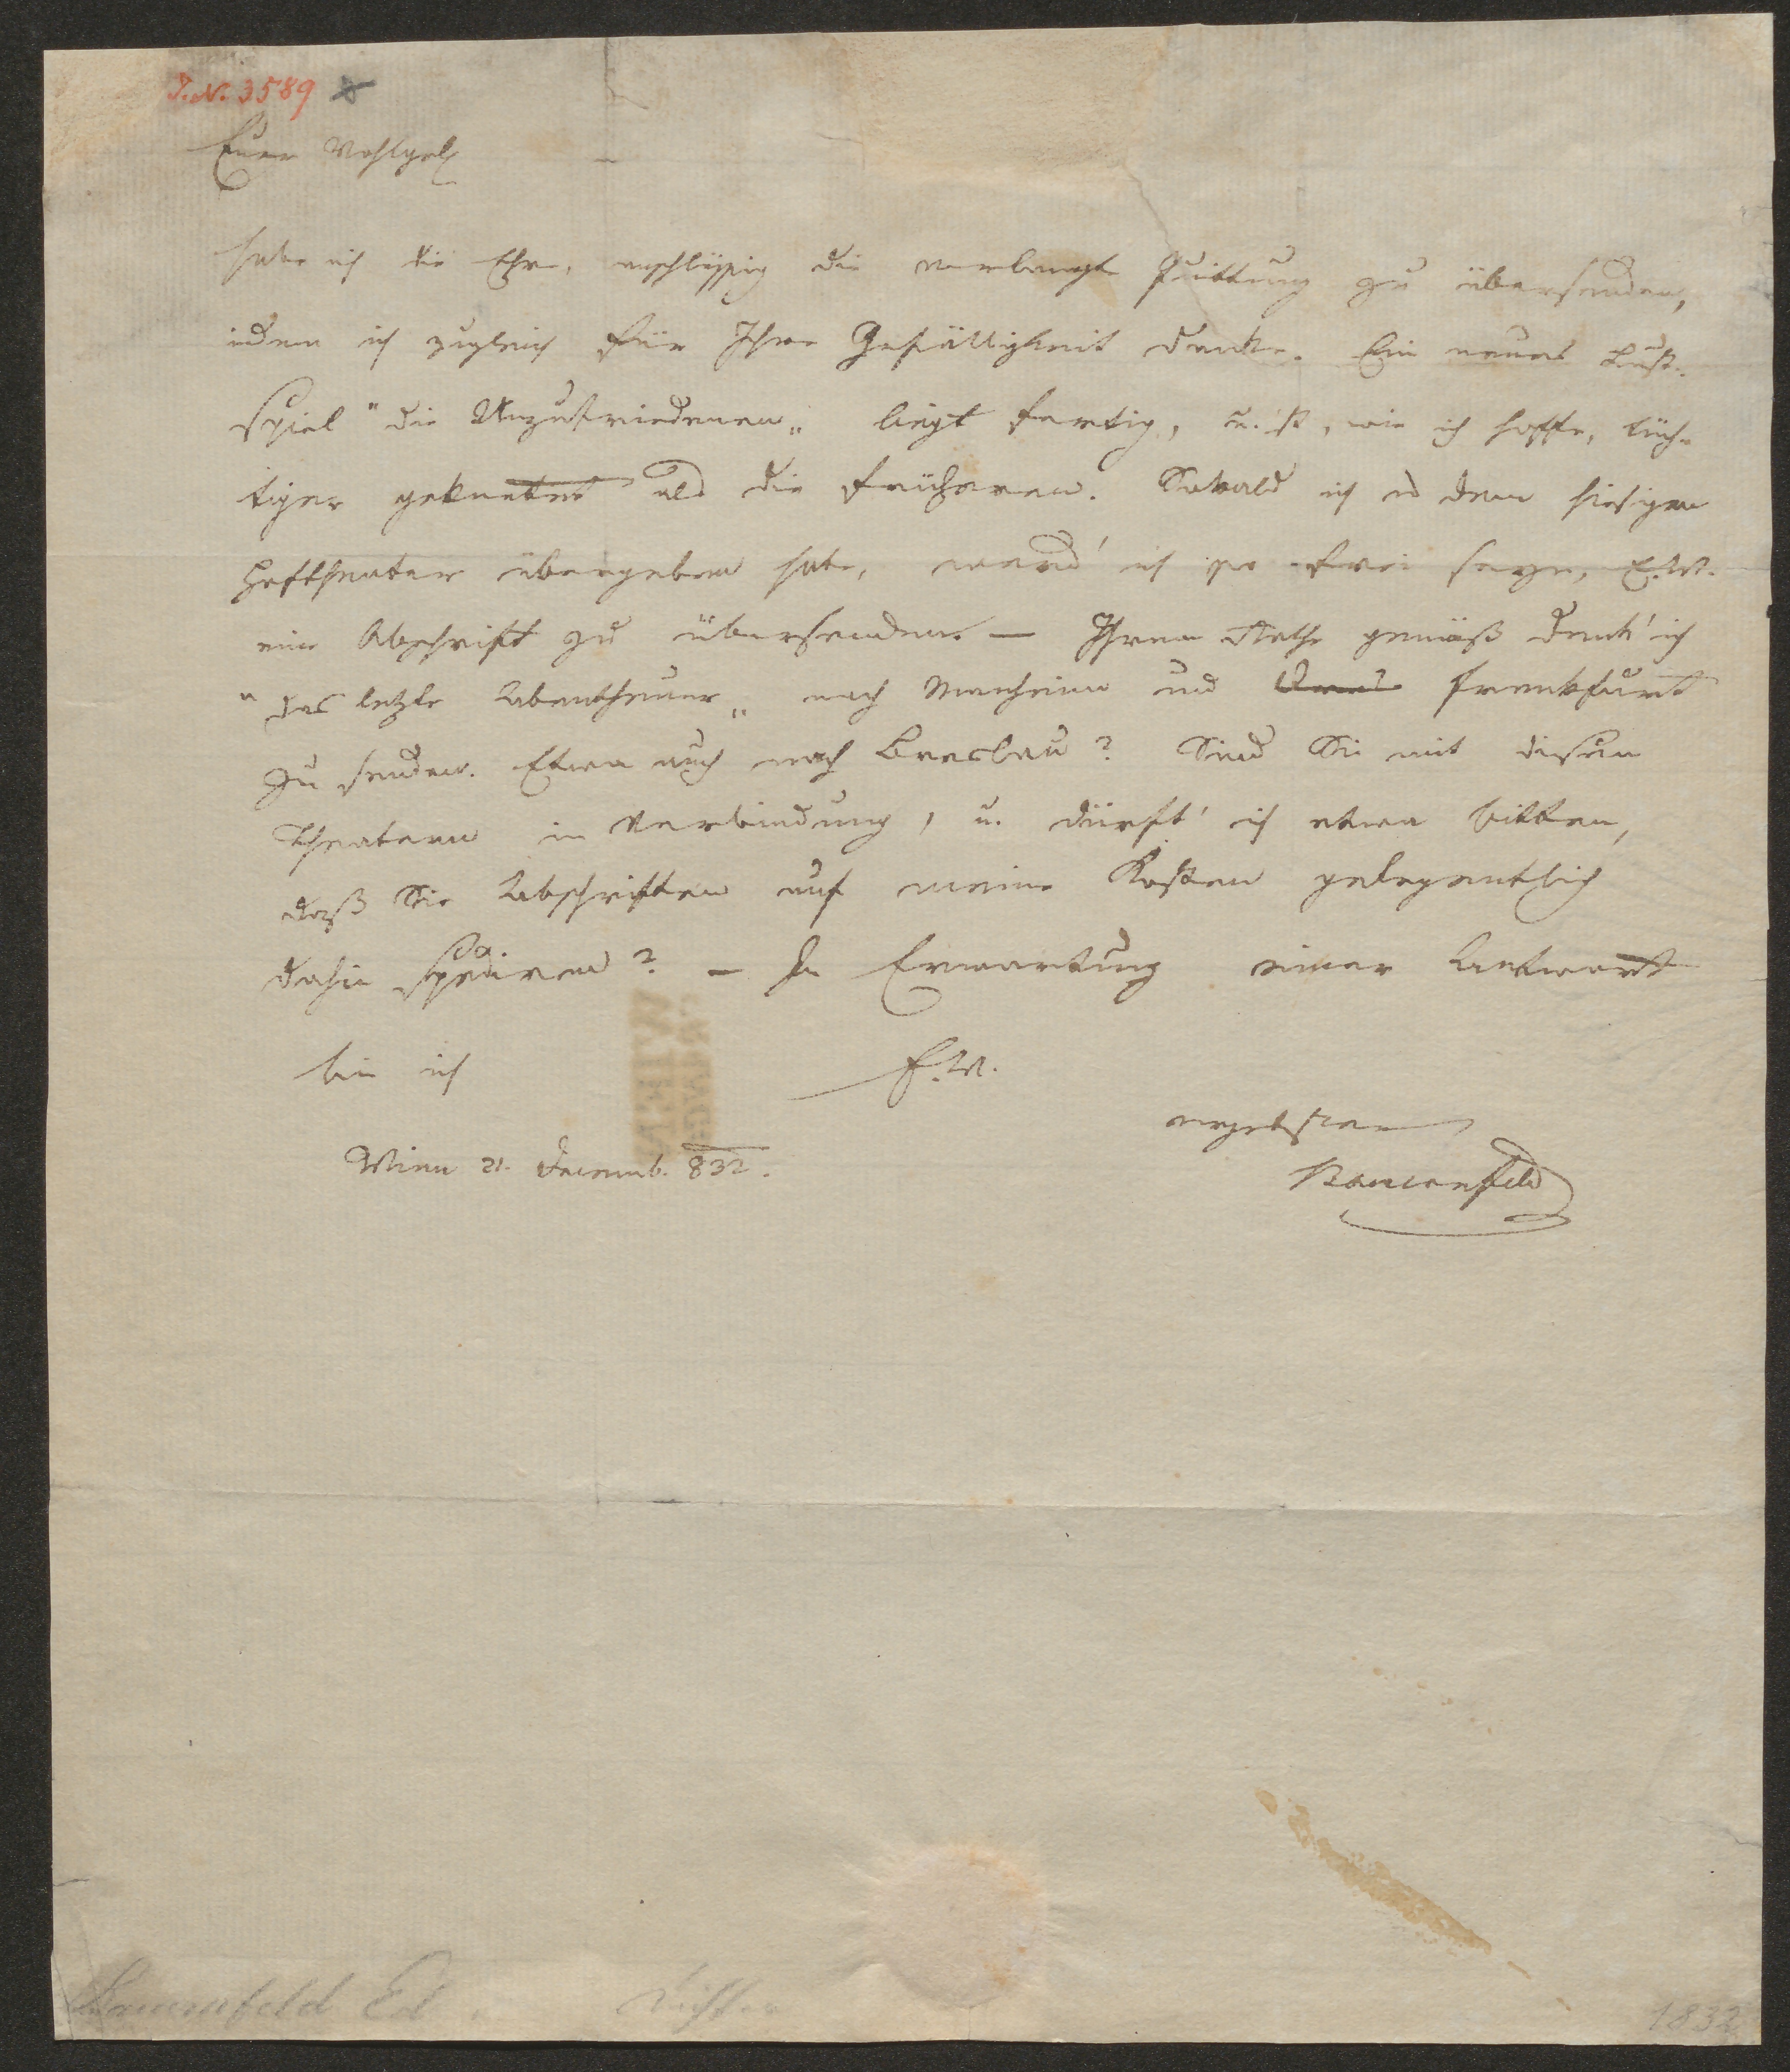 J.N. 3589
Euer Wohlgeb
habe ich die Ehre, anschlüssig die verlangte Quittung zu übersenden,
indem ich zugleich für Ihre Gefälligkeit danke. Ein neues Lust-
spiel "die Unzufriedenen„ liegt fertig, u. ist, wie ich hoffe, tüch-
tiger geknetet als die früheren. Sobald ich es dem hiesigen
Hoftheater übergeben habe, werd' ich so frei seyn, E.W.
eine Abschrift zu übersenden. — Ihrem Rathe gemäß denk' ich
"das letzte Abentheuer„ nach Manheim und Frankfurt
zu senden. Etwa auch nach Breslau? Sind Sie mit diesen
Theatern in Verbindung, u. dürft' ich etwa bitten,
daß Sie Abschriften auf meine Kosten gelegentlich
dahin spediren? – In Erwartung einer Antwort
bin ich E.W.
ergebster
Wien 21. Decemb. 832.
Bauernfeld
WIEN
Bauernfeld Ed
Dichter
1832